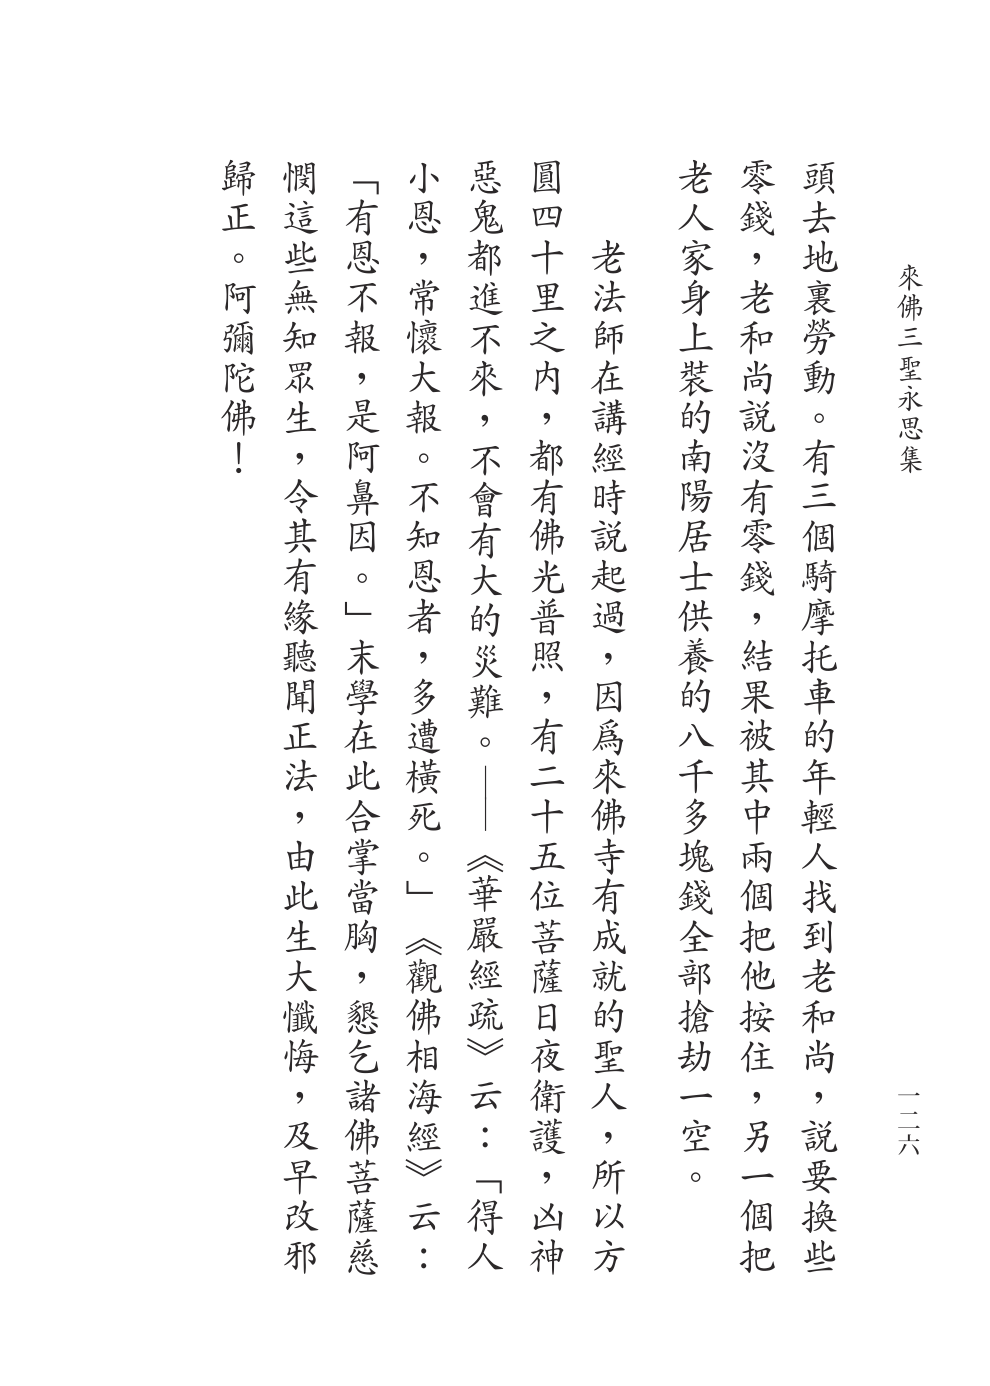 來佛三聖永思集
一二六
頭去地裏勞動。有三個騎摩托車的年輕人找到老和尚，説要換些
零錢，老和尚説沒有零錢，結果被其中兩個把他按住，另一個把
老人家身上裝的南陽居士供養的八千多塊錢全部搶劫一空。
老法師在講經時説起過，因爲來佛寺有成就的聖人，所以方
圓四十里之内，都有佛光普照，有二十五位菩薩日夜衛護，凶神
惡鬼都進不來，不會有大的災難。——《華嚴經疏》云：「得人
小恩，常懷大報。不知恩者，多遭橫死。」《觀佛相海經》云：
「有恩不報，是阿鼻因。」末學在此合掌當胸，懇乞諸佛菩薩慈
憫這些無知眾生，令其有緣聽聞正法，由此生大懺悔，及早改邪
歸正。阿彌陀佛！